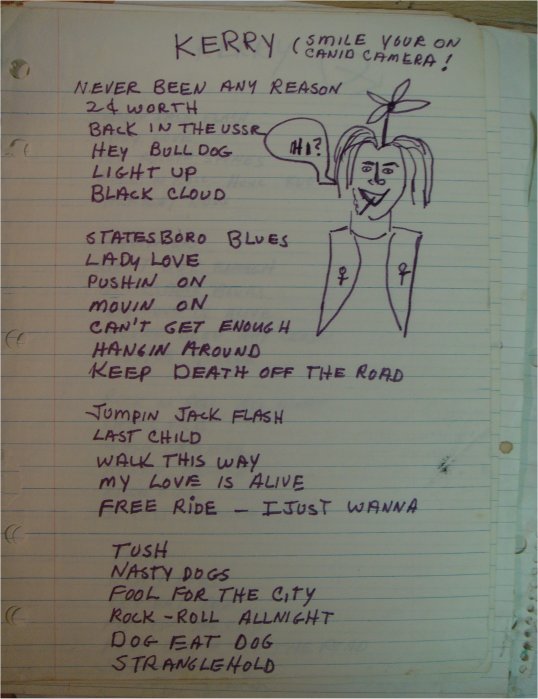 KERRY (SMILE YOUR ON
CANID CAMERA!
NEVER BEEN ANY REASON
2¢ WORTH
BACK IN THE USSR
HEY BULLDOG
HI?
LIGHT UP
BLACK CLOUD
STATESBORO BLUES
LADY LOVE
PUSHIN ON
MOVIN ON
CAN'T GET ENOUGH
HANGIN AROUND
KEEP DEATH OFF THE ROAD
JUMPIN JACK FLASH
LAST CHILD
WALK THIS WAY
MY LOVE IS ALIVE
FREE RIDE - I JUST WANNA
TUSH
NASTY DOGS
FOOL FOR THE CITY
ROCK-ROLL ALLNIGHT
DOG EAT DOG
STRANGLEHOLD